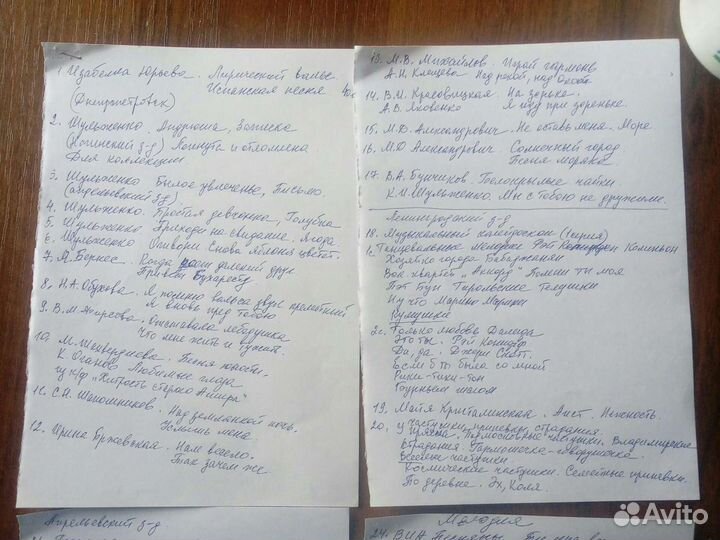 1. Изабелла Юрьева. Лирический вальс
Испанская песня
(Днепропетровск)
2. Шульженко. Андрюша, Записка
(Ногинский з-д) Погнута и отломлена
Для коллекции
3. Шульженко Былое увлеченье, Письмо.
(апрелевский з-д)
4. Шульженко. Простая девчонка, Голубка
5. Шульженко. Приходи на свидание. Ягода.
6. Шульженко Отвори Снова яблоня цветет.
7. М. Бернес. Когда поет далекий друг
Привет Бухаресту
8. Н.А. Обухова. Я помню вальса звук прелестный
Я вновь пред тобою
9. В.М. Отставала лебёдушка
Что мне жить и тужить.
10. М. Шехердиева. Песня юности.
К. Оганов Любимые глаза
из к/ф "Хитрость старого Ашира"
11. С.Я. Шапошников. Над землянкой ночь.
Услышь меня
12. Ирина Бржевская. Нам весело.
Так зачем же
13. М.В. Михайлов. Играй гармонь
А.И. Клещева Над рекой, над Окой
14. В.И. Красовицкая. На зорьке.
А.В. Яковенко Я иду при дороженьке
15. М.Д. Александрович. Не оставь меня. Море
16. М.Д. Александрович. Солнечный город
Песня моряка
17. В.А. Бунчиков. Белокрылые чайки
К.И. Шульженко. Мы с тобою не дружили.
Ленинградский з-д
18. Музыкальный калейдоскоп (1 серия)
1с. Танцевальные мелодии Рэй Кониньон
Ходят по городу
Вок. квартет "Аккорд" Тополи ты моя
Пэт Бун Тирольские телушки
Ну что Марина Марини
Румушки
2с. Только любовь Далида
Это ты. Рэй
Да, да. Джери Скотт.
Если б ты была со мной
Рики-тики-тон
Бурным шагом
19. Майя Кристалинская. Аист. Нежность.
20. частушки, припевки страдания
Подмосковные частушки. Владимирские
страдания. Гармошечка-говорушечка.
Веселые частушки
Космические частушки. Семейные припевки.
По деревне. Эх, Коля.
Апрелевский з-д
21.
Мелодия
24. ВИА
Avito